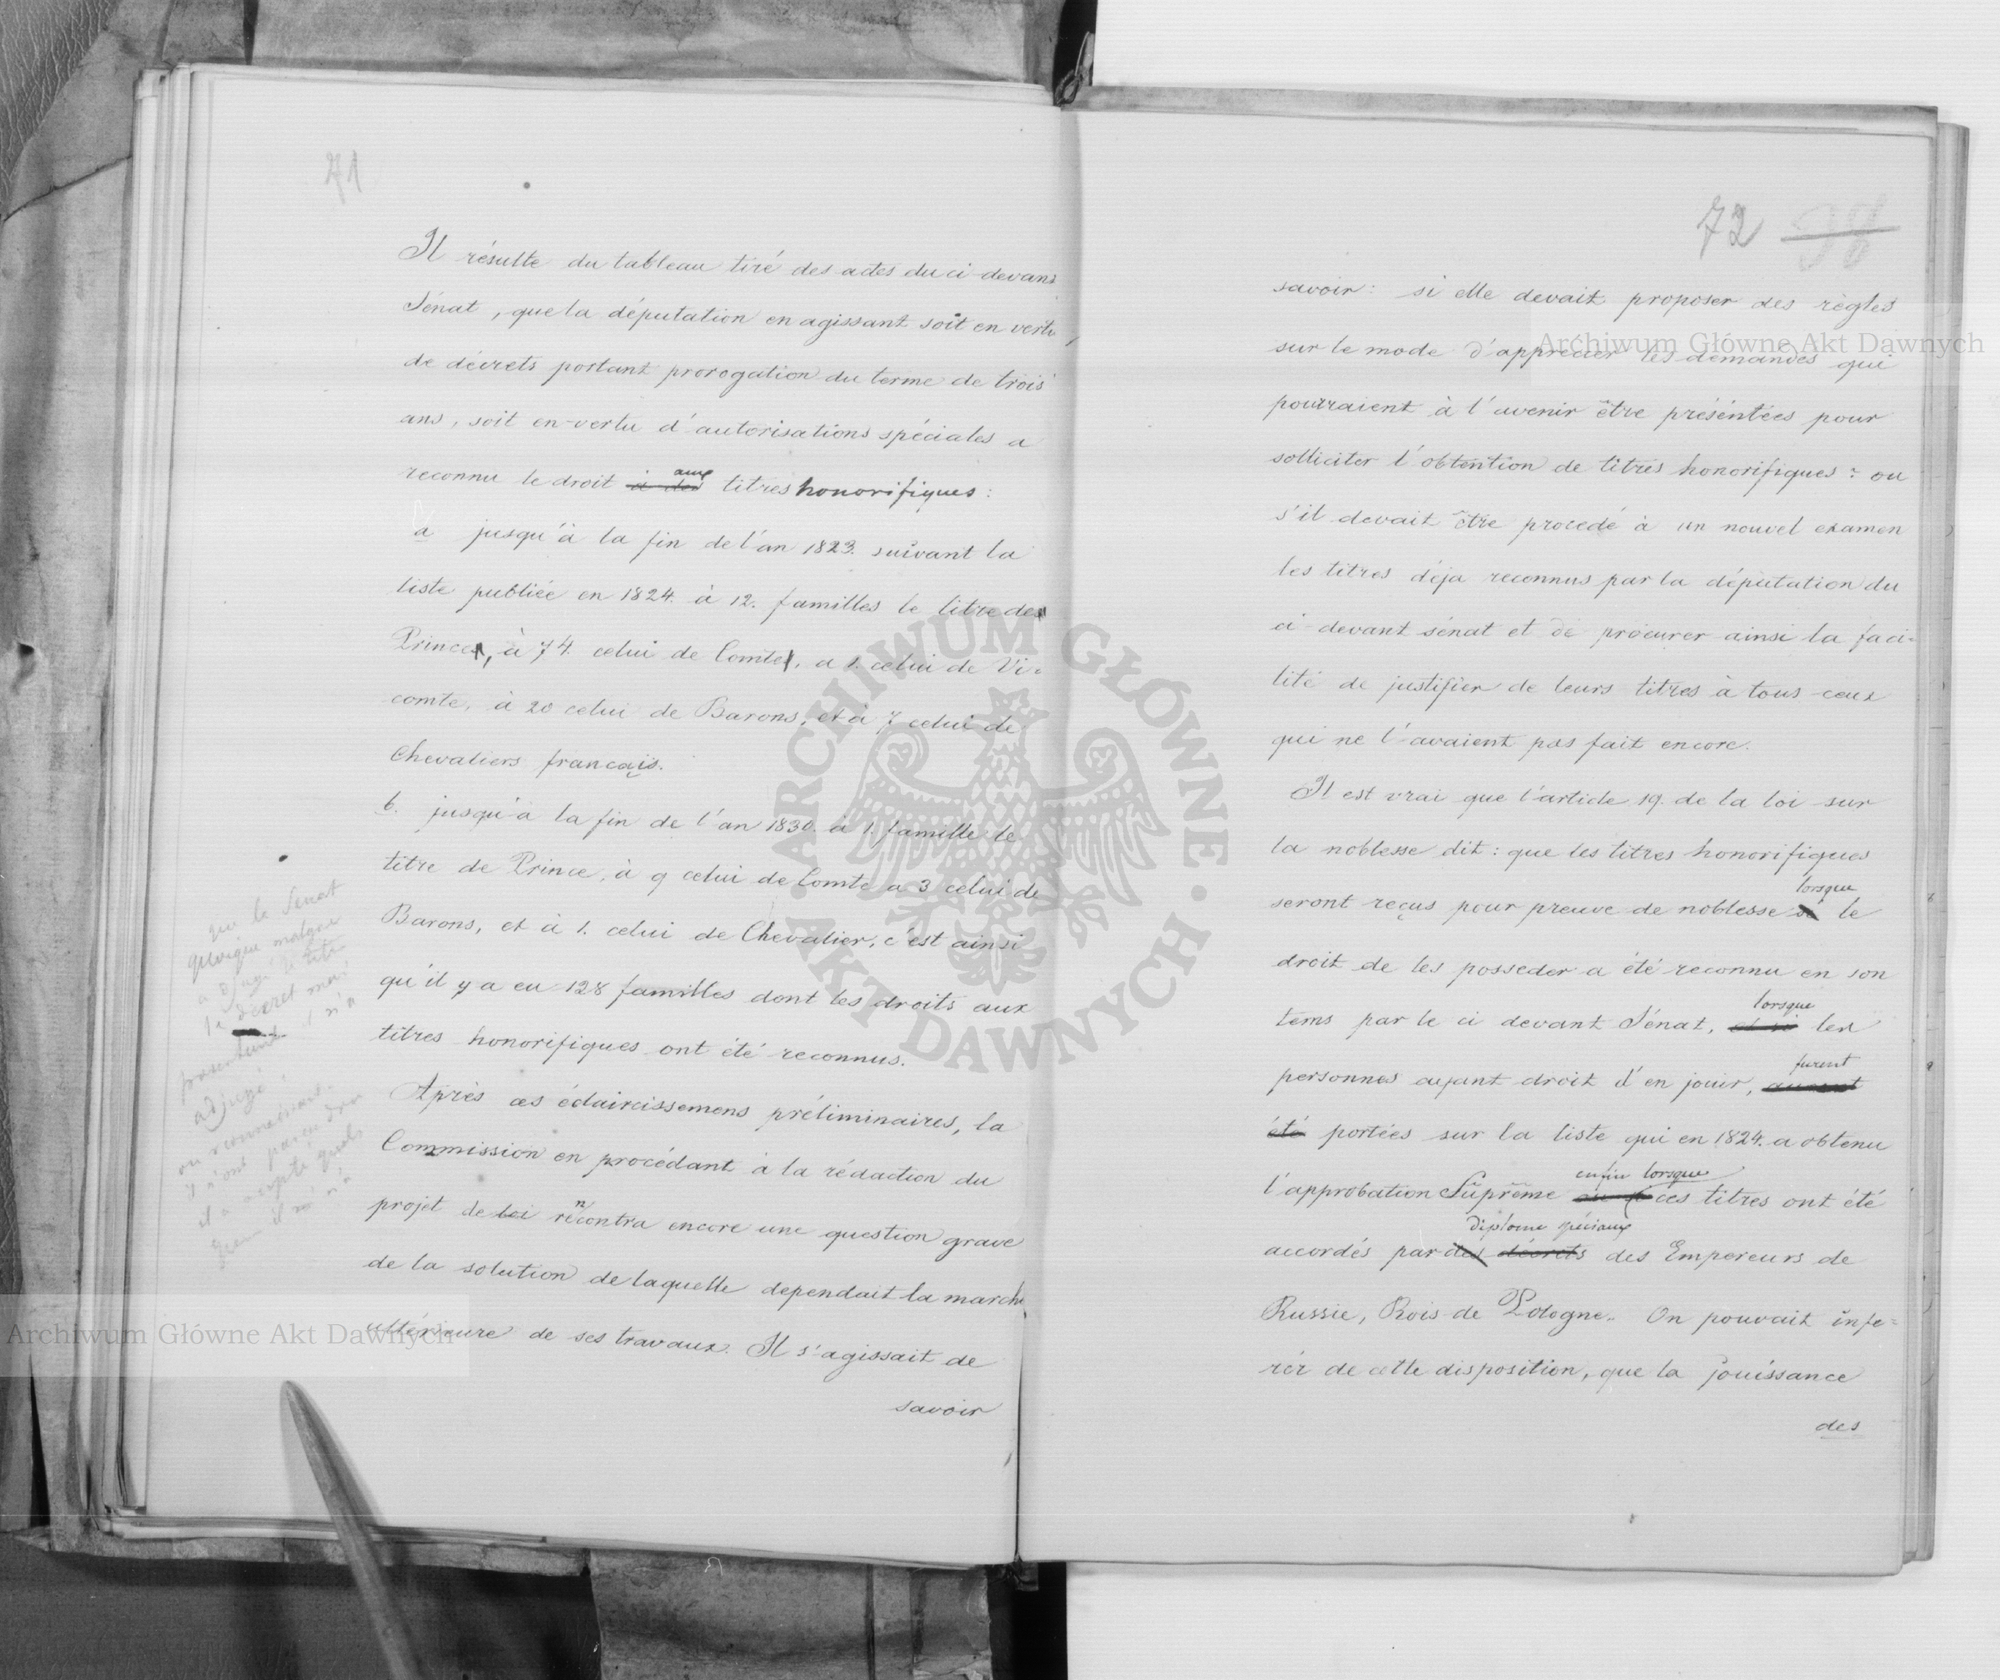 71
Il résulte du tableau tiré des actes du ci-devant
Sénat, que la députation en agissant soit en vertu
de décrets portant prorogation du terme de trois
ans, soit en vertu d'autorisations spéciales a
reconnu le droit à des aux titres honorifiques:
a jusqu'à la fin de l'an 1823. suivant la
liste publiée en 1824. à 12. familles le titre de
Prince, à 74. celui de Comte, a 1. celui de Vi-
comte, à 20 celui de Barons, et à 7 celui de
Chevaliers français.
b. jusqu'à la fin de l'an 1830. à 1. famille le
titre de Prince, à 9 celui de Comte a 3 celui de
Barons, et à 1. celui de Chevalier, c'est ainsi
qu'il y a eu 128 familles dont les droits aux
titres honorifiques ont été reconnus.
Après ces éclaircissemens préliminaires, la
Commission en procédant à la rédaction du
projet de loi rencontra encore une question grave
de la solution de laquelle dependait la marche
ultérieure de ses travaux. Il s'agissait de
savoir
le Senat
quoique malgré
le décret
adjugé
72 98
savoir: si elle devait proposer des règles
sur le mode d'apprécier les demandes qui
pourraient à l'avenir être préséntées pour
solliciter l'obtention de titres honorifiques: ou
s'il devait être procedé à un nouvel examen
les titres déja reconnus par la députation du
ci-devant sénat et de procurer ainsi la faci-
lité de justifier de leurs titres à tous ceux
qui ne l'avaient pas fait encore.
Il est vrai que l'article 19. de la loi sur
la noblesse dit: que les titres honorifiques
seront reçus pour preuve de noblesse si lorsque le
droit de les posseder a été reconnu en son
tems par le ci devant Sénat, et si lorsque les
personnes ayant droit d'en jouir, furent
été portées sur la liste qui en 1824. a obtenu
l'approbation Suprême enfin lorsque ces titres ont été
accordés par des décrets diplome spéciaux des Empereurs de
Russie, Rois de Pologne. On pouvait infe-
rér de cette disposition, que la jouissance
des
ARCHIWUM GŁÓWNE · AKT DAWNYCH ·
Archiwum Główne Akt Dawnych
Archiwum Główne Akt Dawnych